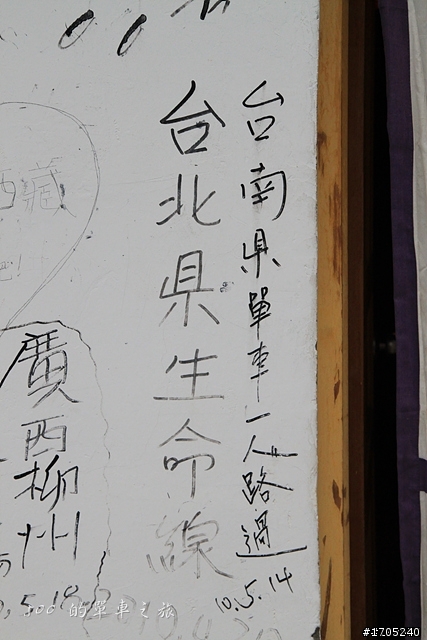 台南県單車一人路過
10.5.14
台北県生命線
西藏
吧!
廣西柳州
5.18
500的單車之旅
#1705240